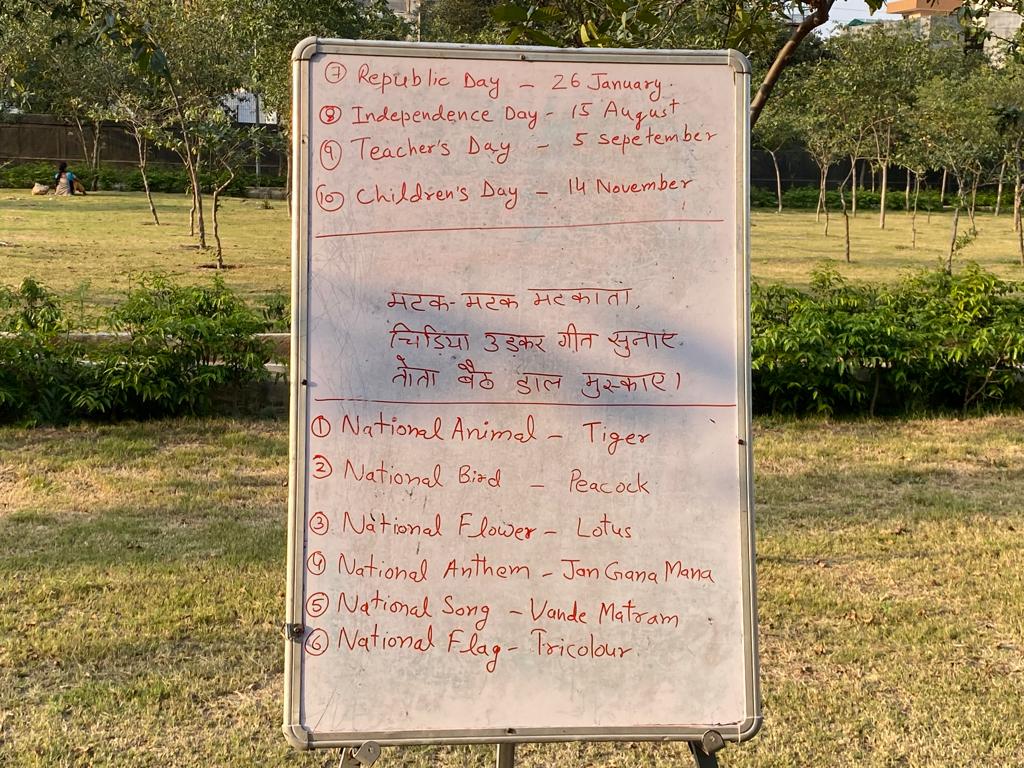 ⑦ Republic Day - 26 January.
⑧ Independence Day - 15 August
⑨ Teacher's Day - 5 sepetember
⑩ Children's Day - 14 November
मटक-मटक मटकाता,
चिड़िया उड़कर गीत सुनाए
तोता बैठ डाल मुस्काए।
① National Animal - Tiger
② National Bird - Peacock
③ National Flower - Lotus
④ National Anthem - Jan Gana Mana
⑤ National Song - Vande Matram
⑥ National Flag - Tricolour.